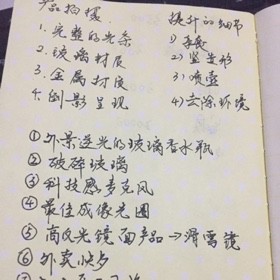 产品拍摄
1. 完整的光条
2. 玻璃材质
3. 金属打质
4. 倒影呈现
提升的细节
1)
2) 竖生形
3) 喷壶
4) 去除环境
① 外景逆光的玻璃香水瓶
② 破碎玻璃
③ 科技感麦克风
④ 最佳成像光圈
⑤ 高反光镜面产品→滑雪镜
⑥ 外卖快点